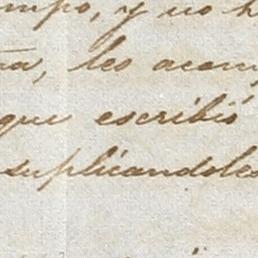 mpo, y no h
a, les acom
que escribió
suplicandoles